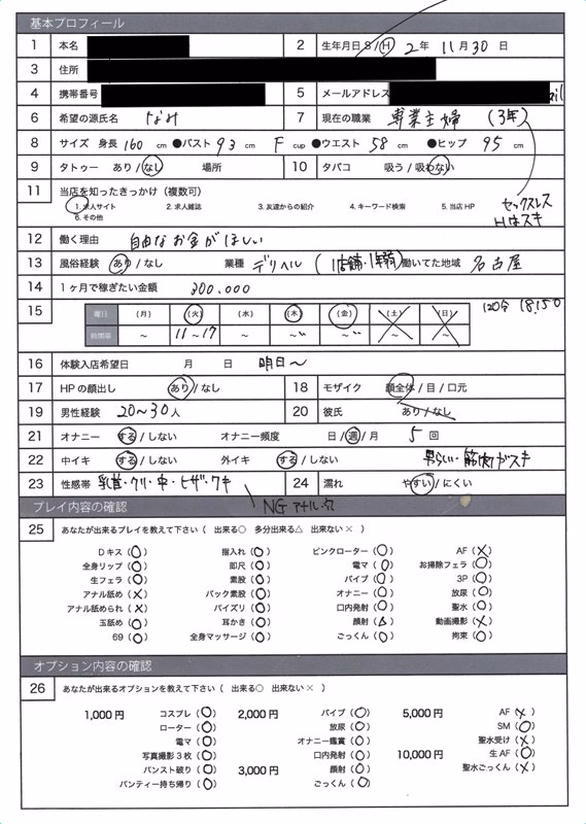 基本プロフィール
1 本名 2 生年月日 S / H 2年 11月30日
3 住所
4 携帯番号 5 メールアドレス
6 希望の源氏名 なみ 7 現在の職業 専業主婦 (3年)
8 サイズ 身長 160 cm ●バスト 93 cm F cup ●ウエスト 58 cm ●ヒップ 95 cm
9 タトゥー あり / なし 場所 10 タバコ 吸う / 吸わない
11 当店を知ったきっかけ (複数可)
1. 求人サイト 2. 求人雑誌 3. 友達からの紹介 4. キーワード検索 5. 当店HP
6. その他
セックスレス
Hはスキ
12 働く理由 自由なお金がほしい
13 風俗経験 あり / なし 業種 デリヘル (1店舗・1年弱) 働いてた地域 名古屋
14 1ヶ月で稼ぎたい金額 300.000
15 曜日 (月) (火) (水) (木) (金) (土) (日) 120分 18,150
時間帯 ~ 11~17 ~ ~〃 ~〃 ~ ~
16 体験入店希望日 月 日 明日~
17 HPの顔出し あり / なし 18 モザイク 顔全体 / 目 / 口元
19 男性経験 20~30人 20 彼氏 あり / なし
21 オナニー する / しない オナニー頻度 日 / 週 / 月 5 回
22 中イキ する / しない 外イキ する / しない 男らしい・筋肉がスキ
23 性感帯 乳首・クリ・中・ヒザ・ワキ 24 濡れ やすい / にくい
NG アナル
プレイ内容の確認
25 あなたが出来るプレイを教えて下さい ( 出来る○ 多分出来る△ 出来ない× )
Dキス (○) 指入れ (○) ピンクローター (○) AF (×)
全身リップ (○) 即尺 (○) 電マ (○) お掃除フェラ (○)
生フェラ (○) 素股 (○) バイブ (○) 3P (○)
アナル舐め (×) バック素股 (○) オナニー (○) 放尿 (○)
アナル舐められ (×) パイズリ (○) 口内発射 (○) 聖水 (○)
玉舐め (○) 耳かき (○) 顔射 (△) 動画撮影 (×)
69 (○) 全身マッサージ (○) ごっくん (○) 拘束 (○)
オプション内容の確認
26 あなたが出来るオプションを教えて下さい ( 出来る○ 出来ない× )
1,000円 コスプレ (○) 2,000円 バイブ (○) 5,000円 AF (×)
ローター (○) 放尿 (○) SM (○)
電マ (○) オナニー鑑賞 (○) 聖水受け (×)
写真撮影3枚 (○) 口内発射 (○) 10,000円 生AF (○)
パンスト破り (○) 3,000円 顔射 (○) 聖水ごっくん (×)
パンティー持ち帰り (○) ごっくん (○)